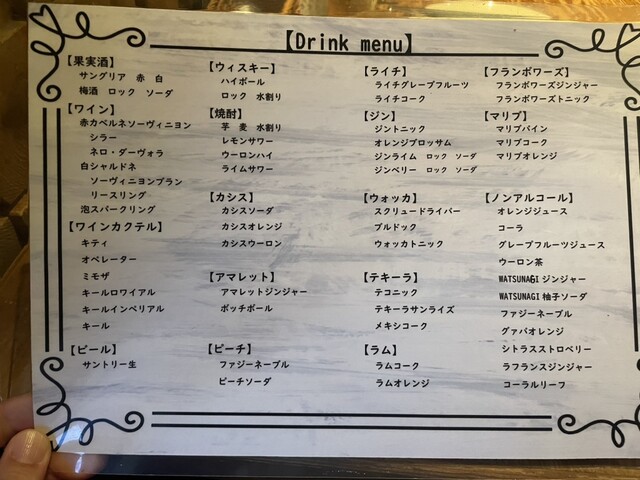 【Drink menu】
【果実酒】
サングリア 赤 白
梅酒 ロック ソーダ
【ワイン】
赤カベルネソーヴィニヨン
シラー
ネロ・ダーヴォラ
白シャルドネ
ソーヴィニヨンブラン
リースリング
泡スパークリング
【ワインカクテル】
キティ
オペレーター
ミモザ
キールロワイアル
キールインペリアル
キール
【ビール】
サントリー生
【ウィスキー】
ハイボール
ロック 水割り
【焼酎】
芋 麦 水割り
レモンサワー
ウーロンハイ
ライムサワー
【カシス】
カシスソーダ
カシスオレンジ
カシスウーロン
【アマレット】
アマレットジンジャー
ボッチボール
【ピーチ】
ファジーネーブル
ピーチソーダ
【ライチ】
ライチグレープフルーツ
ライチコーク
【ジン】
ジントニック
オレンジブロッサム
ジンライム ロック ソーダ
ジンベリー ロック ソーダ
【ウォッカ】
スクリュードライバー
ブルドック
ウォッカトニック
【テキーラ】
テコニック
テキーラサンライズ
メキシコーク
【ラム】
ラムコーク
ラムオレンジ
【フランボワーズ】
フランボワーズジンジャー
フランボワーズトニック
【マリブ】
マリブパイン
マリブコーク
マリブオレンジ
【ノンアルコール】
オレンジジュース
コーラ
グレープフルーツジュース
ウーロン茶
WATSUNAGIジンジャー
WATSUNAGI柚子ソーダ
ファジーネーブル
グァバオレンジ
シトラスストロベリー
ラフランスジンジャー
コーラルリーフ